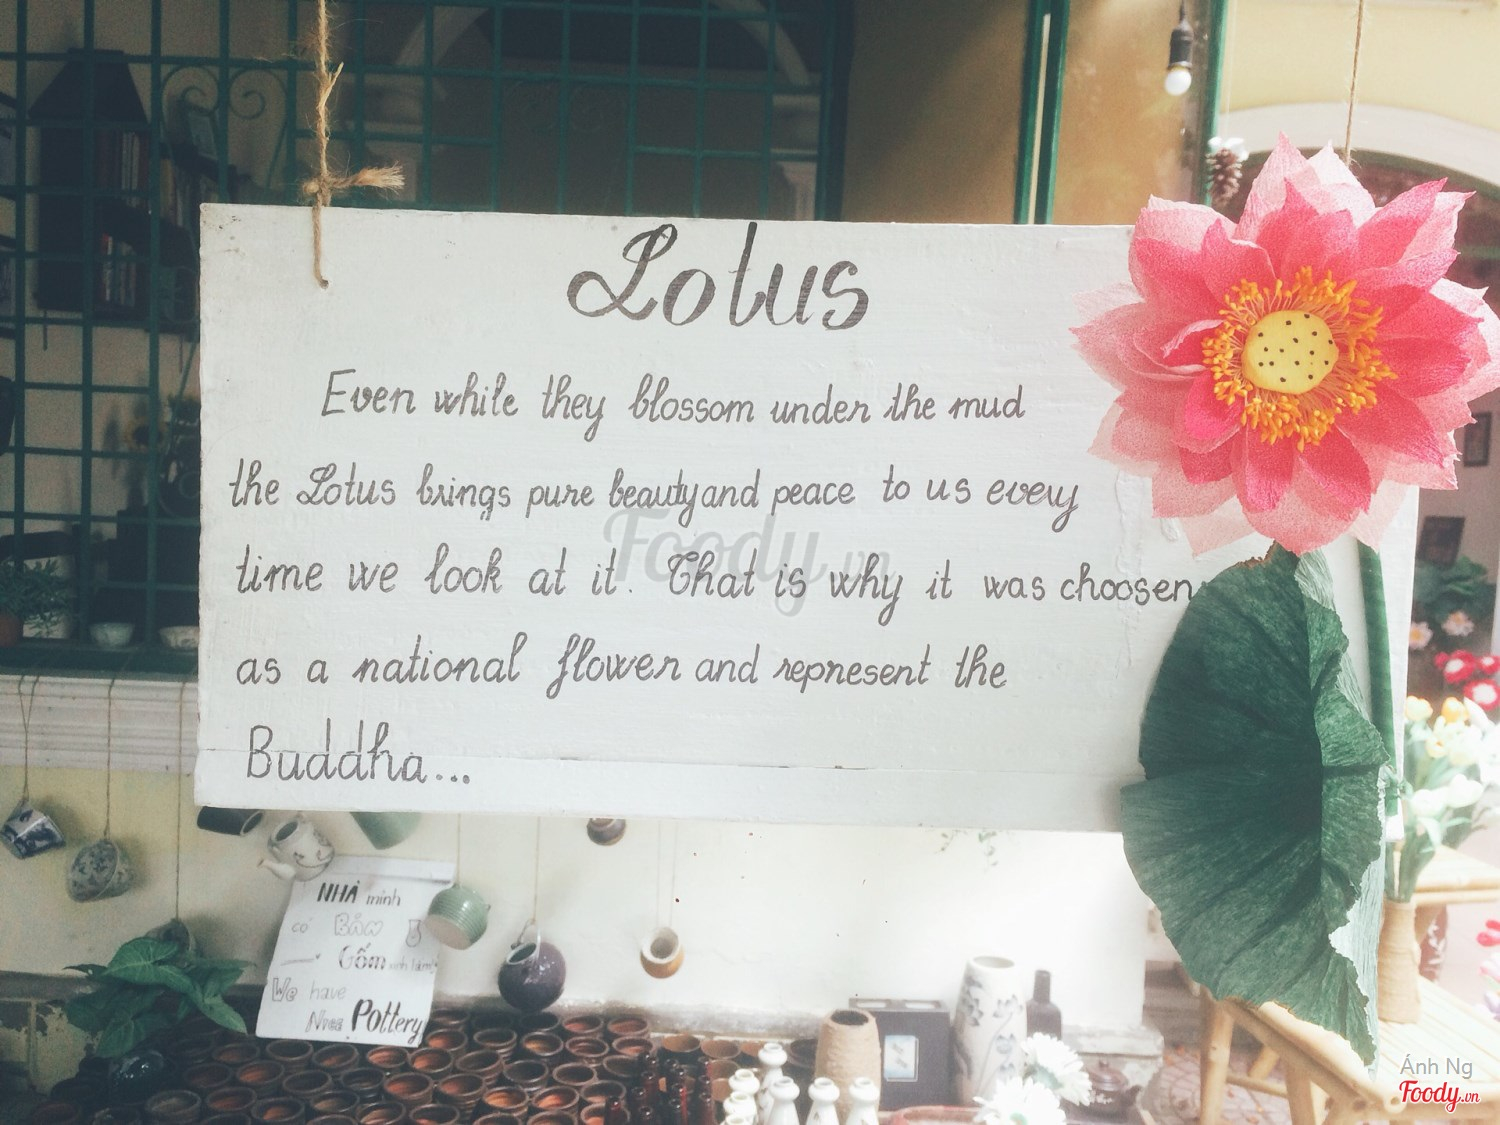 Lotus
Even while they blossom under the mud
the Lotus brings pure beauty and peace to us every
time we look at it. That is why it was choosen
as a national flower and represent the
Buddha...
NHÀ mình
có BÁN
Gốm
We have
Pottery
Foody.vn
Ánh Ng
Foody.vn